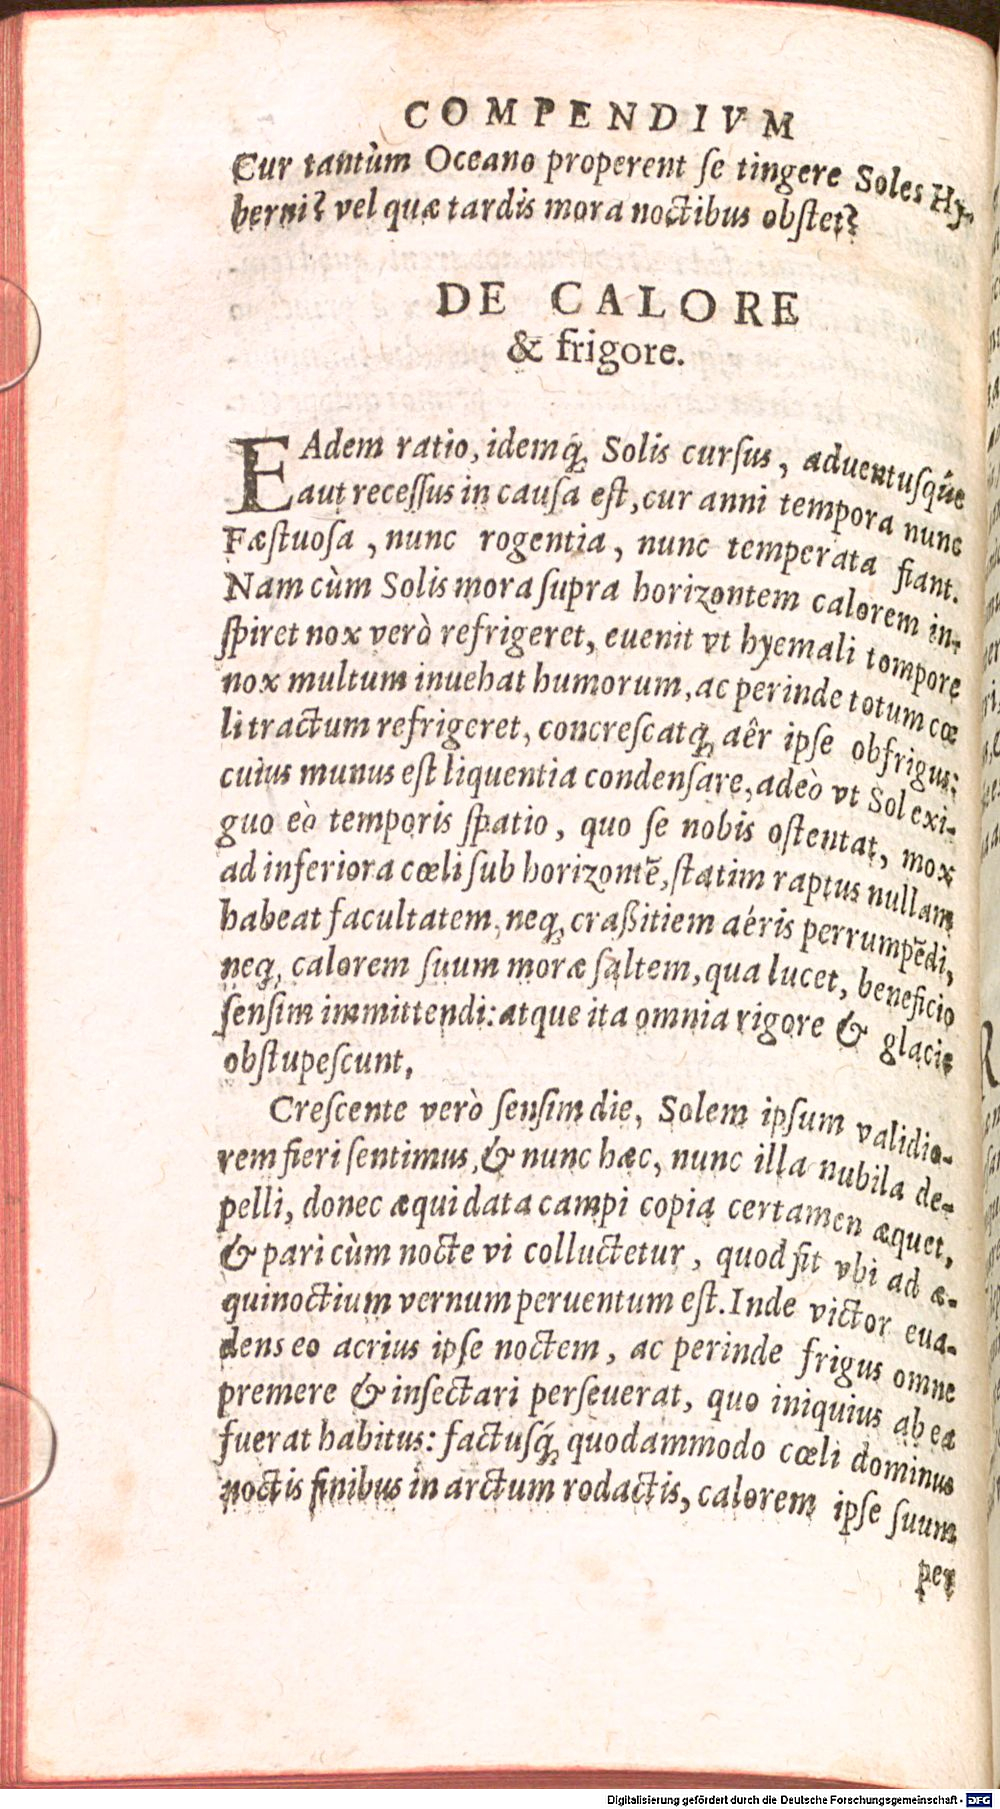 COMPENDIVM
Cur tantùm Oceano properent ſe tingere Soles Hy-
berni? vel quæ tardis mora noctibus obſtet?
DE CALORE
& frigore.
EAdem ratio, idemq́; Solis curſus, aduentuſq́ue
aut receſſus in cauſa eſt, cur anni tempora nunc
Fæſtuoſa, nunc rogentia, nunc temperata fiant.
Nam cùm Solis mora ſupra horizontem calorem in-
ſpiret nox verò refrigeret, euenit vt hyemali tompore
nox multum inuehat humorum, ac perinde totum cœ
li tractum refrigeret, concreſcatq; aêr ipſe obfrigus:
cuius munus eſt liquentia condenſare, adeò vt Sol exi-
guo eò temporis ſpatio, quo ſe nobis oſtentat, mox
ad inferiora cœli ſub horizontẽ, ſtatim raptus nullam
habeat facultatem, neq; craßitiem aéris perrumpẽdi,
neq; calorem ſuum moræ ſaltem, qua lucet, beneficio
ſenſim immittendi: atque ita omnia rigore & glacie
obſtupeſcunt.
Creſcente verò ſenſim die, Solem ipſum validio-
rem fieri ſentimus, & nunc hæc, nunc illa nubila de-
pelli, donec æqui data campi copia certamen æquet,
& pari cùm nocte vi colluctetur, quod fit vbi ad æ-
quinoctium vernum peruentum eſt. Inde victor eua-
dens eo acrius ipſe noctem, ac perinde frigus omne
premere & inſectari perſeuerat, quo iniquius ab ea
fuerat habitus: factuſq́; quodammodo cœli dominus
noctis finibus in arctum rodactis, calorem ipſe ſuum
per
Digitalisierung gefördert durch die Deutsche Forschungsgemeinschaft - DFG